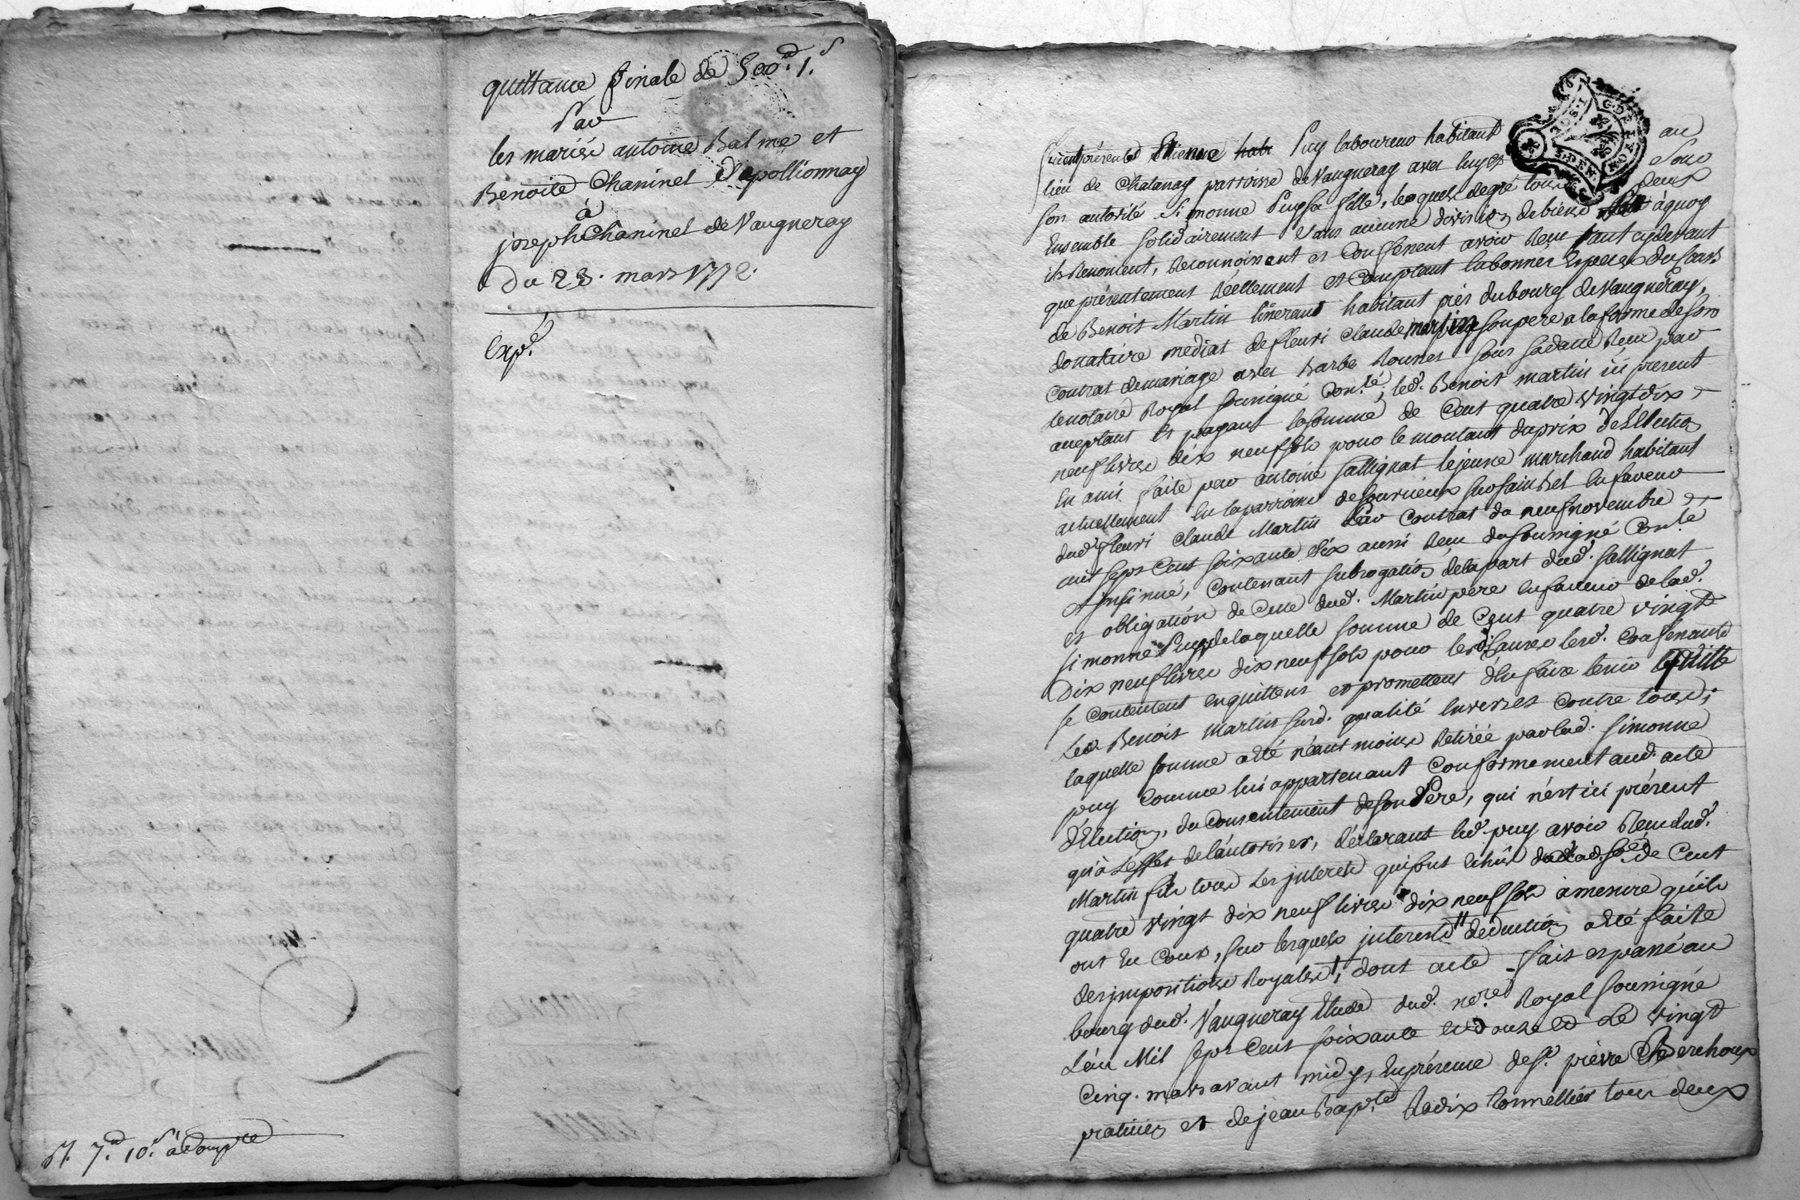 quittance finale de 500.# 1.s
Par
les mariés antoine Balme et
Benoite Chaninel d'apollionnay
à
joseph Chaninel de Vaugneray
Du 23. mars 1772.
Exp.é
R. 7.# 10.s à Compte
furent présents Etienne Puy laboureur habitant au
lieu de Chatanay parroisse de Vaugneray avec luy et sous
son autorité Simonne Puy sa fille, lesquels de gré tous deux
Ensemble solidairement et sans aucune division de biens à quoy
ils Renoncent, Reconnoissent et Confessent avoir Reçu tant cy devant
que présentement Réellement et Comptant la bonnes Especes du Cours
de Benoit Martin habitant près du bourg de Vaugneray,
donataire médiat de fleuri Claude martin son pere a la forme de son
Contrat de mariage avec Barbe sous sa datte Reçu par
le notaire Royal soussigné Con.lé, led. Benoit martin ici present
acceptant et payant la somme de Cent quatre vingt dix
neuf livres dix neuf sols pour le montant du prix d'Election
En ami faite par antoine fallignat le jeune marchand habitant
actuellement En la parroisse de Sourcieux sur sain Bel En faveur
dud. fleuri Claude Martin Par Contrat du neuf novembre
mil sept Cent soixante dix aussi Reçu du soussigné Con.lé
et insinué, Contenant subrogation de la part dud. fallignat
et obligation de Celle dud. Martin pere En faveur de lad.
simonne Puy de laquelle somme de Cent quatre vingt
Dix neuf livres dix neuf sols pour les d. Causes led. Confessants
se Contentent en quittent et promettent d'En faire tenir quitte
Led. Benoit Martin sud. qualité Envers et Contre tous;
laquelle somme a été néant moins Retirée par lad. simonne
puy Comme lui appartenant Conformement aud. acte
d'Election, du Consentement de son Pere, qui n'est ici présent
qu'à L'effet de l'autoriser, déclarant led. puy avoir Reçu dud.
Martin fils tous Les jnterets qui sont Echus de lad. so.e de Cent
quatre vingt dix neuf livres dix neuf sols à mesure qu'ils
ont Eu Cours, sur lesquels jnterets déduction a été faite
des jmpositions Royales; dont acte fait et passé au
bourg dud. Vaugneray Etude dud. no.re Royal soussigné
L'an Mil sept Cent soixante et douze et Le vingt
Cinq. mars avant midy, En présence de s.r pierre Berchoux
praticien et de jean Bap.te Radix tonnellier tous deux